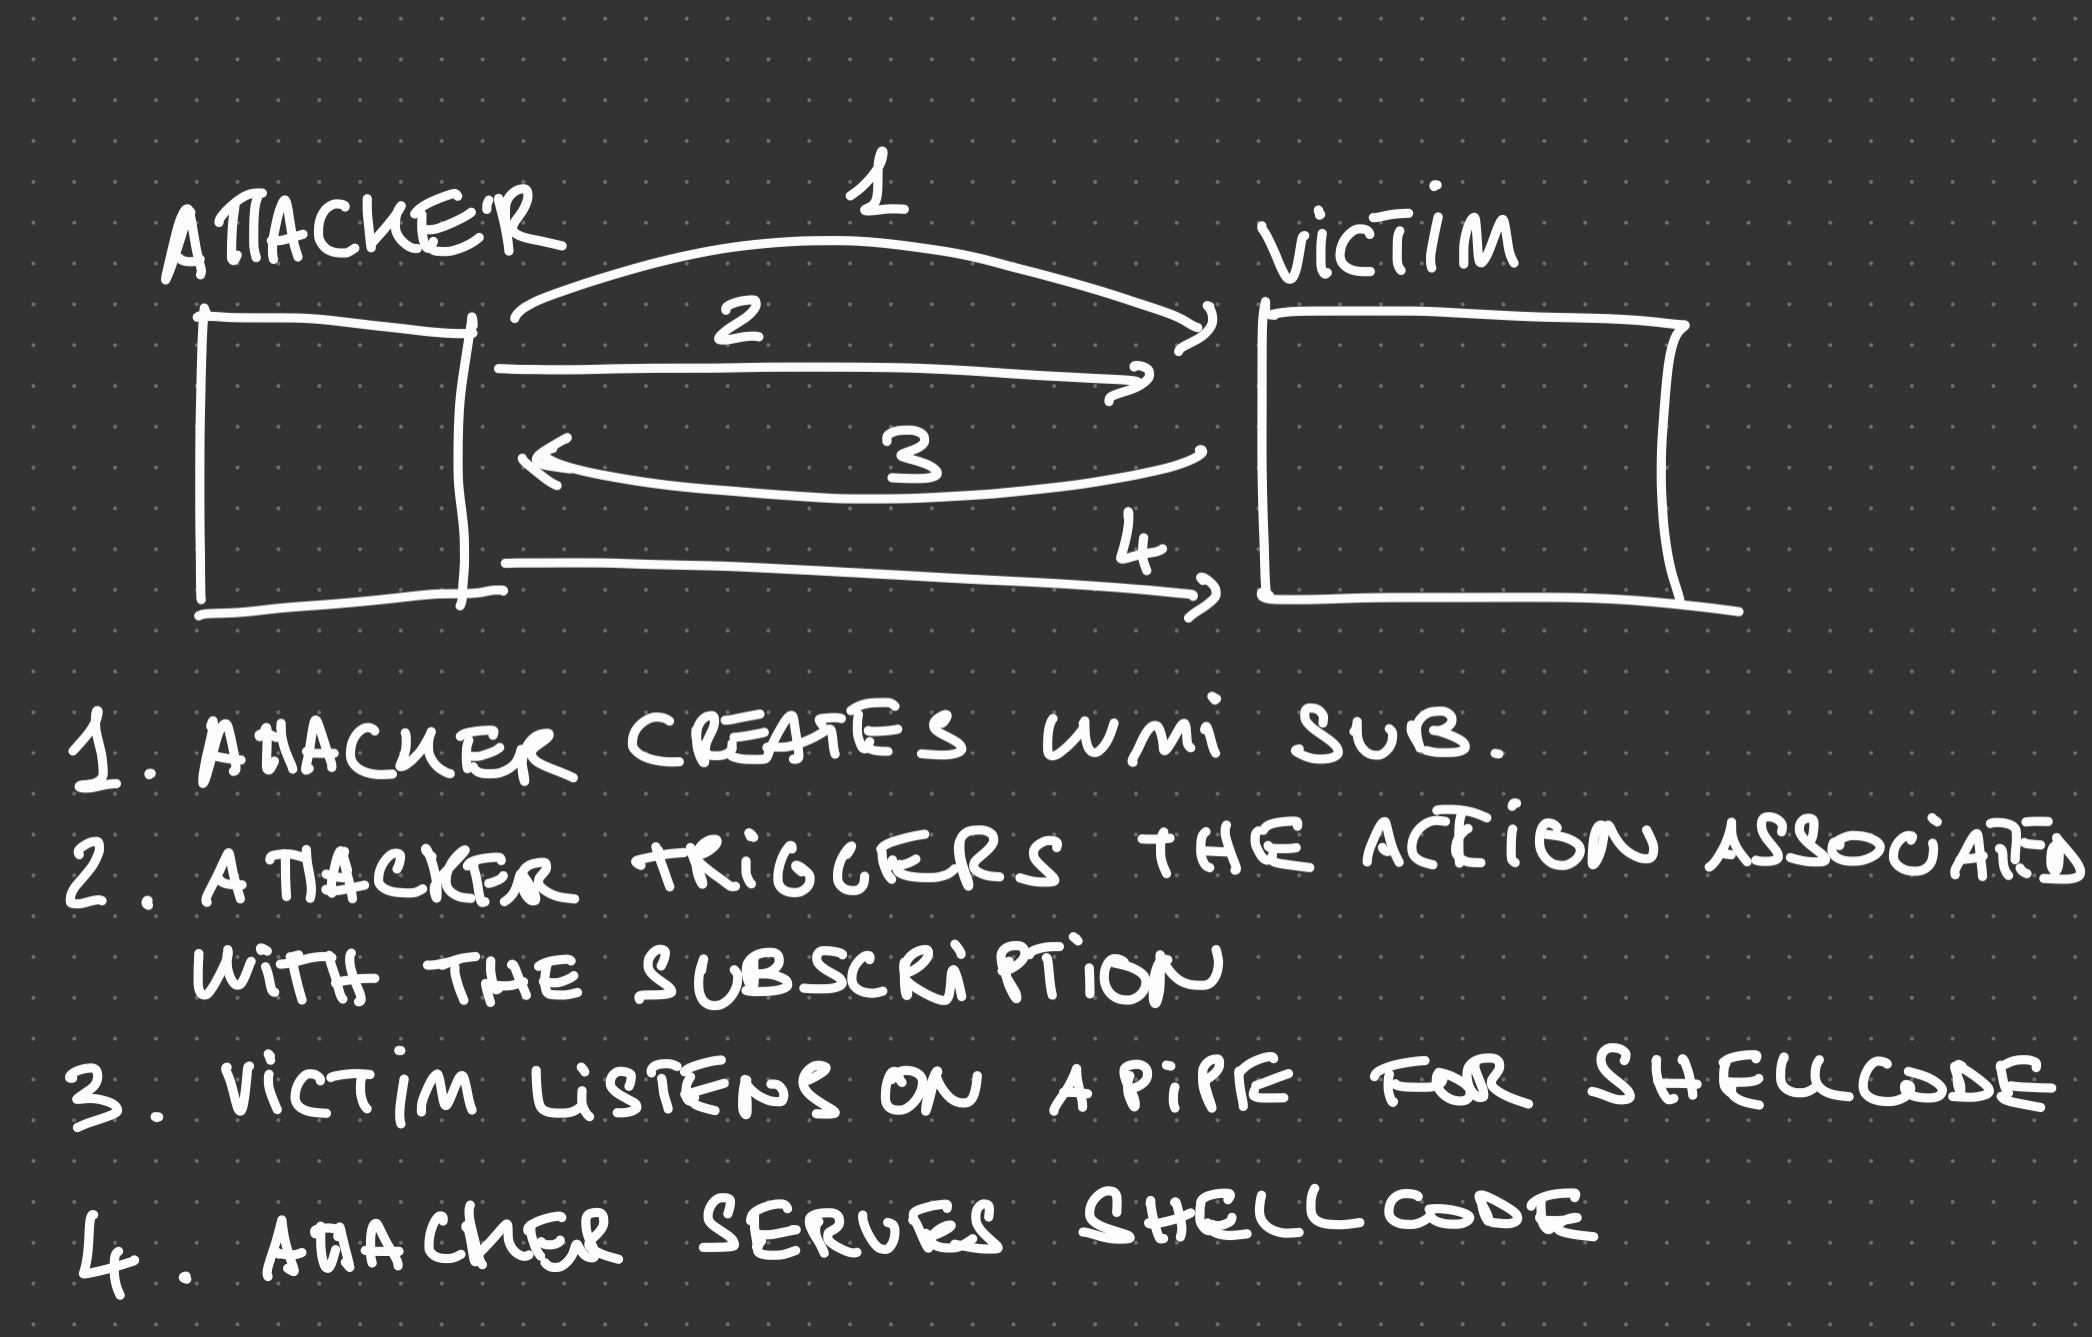 ATTACKER
1
VICTIM
2
3
4
1. ATTACKER CREATES WMI SUB.
2. ATTACKER TRIGGERS THE ACTION ASSOCIATED
WITH THE SUBSCRIPTION
3. VICTIM LISTENS ON A PIPE FOR SHELLCODE
4. ATTACKER SERVES SHELLCODE